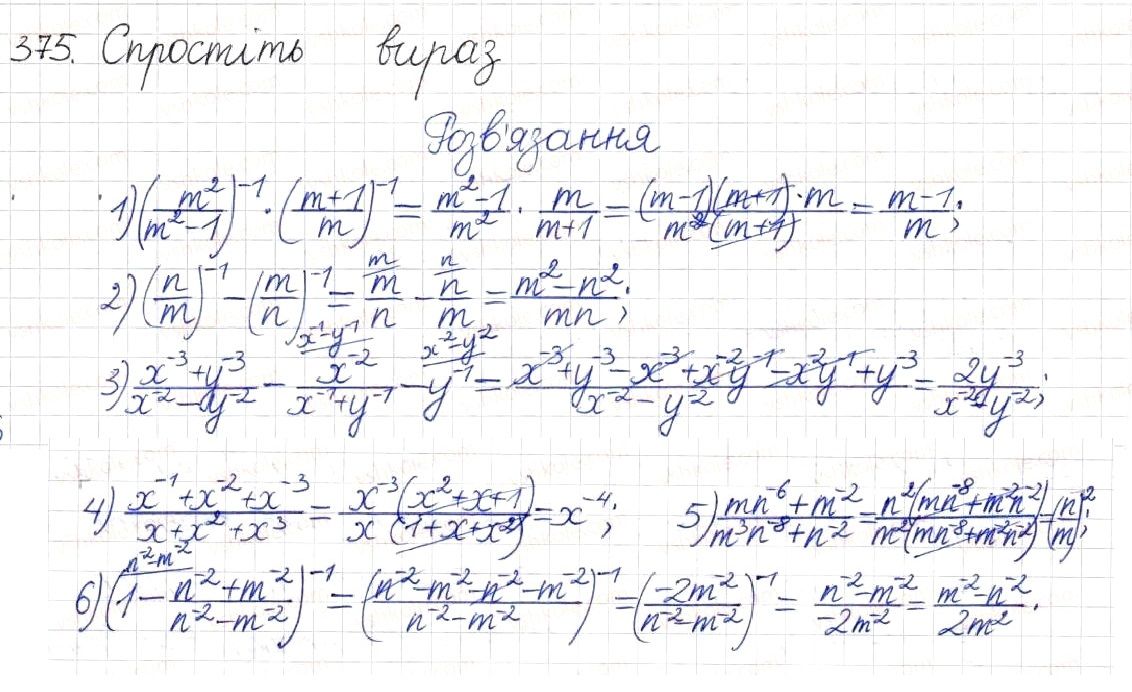 375. Спростіть вираз
Розв'язання
1) (m²/(m²-1))⁻¹ · ((m+1)/m)⁻¹ = (m²-1)/m² · m/(m+1) = ((m-1)(m+1)·m)/(m²(m+1)) = (m-1)/m;
2) (n/m)⁻¹ - (m/n)⁻¹ = m/n - n/m = (m²-n²)/mn;
3) (x⁻³+y⁻³)/(x⁻²-y⁻²) - x⁻²/(x⁻¹+y⁻¹) - y⁻¹ = (x⁻³+y⁻³-x⁻³+x⁻²y⁻¹-x⁻²y⁻¹+y⁻³)/(x⁻²-y⁻²) = 2y⁻³/(x⁻²-y⁻²);
4) (x⁻¹+x⁻²+x⁻³)/(x+x²+x³) = x⁻³(x²+x+1)/(x(1+x+x²)) = x⁻⁴; 5) (mn⁻⁶+m⁻²)/(m³n⁻⁸+n⁻²) = n²(mn⁻⁸+m⁻²n⁻²)/(m²(mn⁻⁸+m⁻²n⁻²)) = (n/m)²;
6) (1 - (n⁻²+m⁻²)/(n⁻²-m⁻²))⁻¹ = ((n⁻²-m⁻²-n⁻²-m⁻²)/(n⁻²-m⁻²))⁻¹ = (-2m⁻²/(n⁻²-m⁻²))⁻¹ = (n⁻²-m⁻²)/(-2m⁻²) = (m⁻²-n⁻²)/2m².